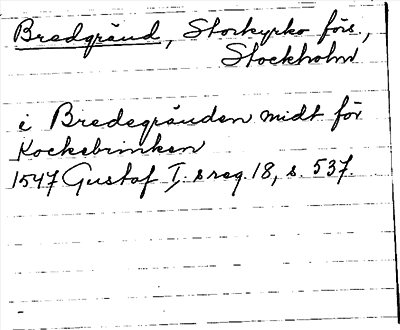 Bredgränd, Storkyrko förs.,
Stockholm
i Bredegränden midt för
Kockebrinken
1547 Gustaf I:s reg. 18, s. 537.